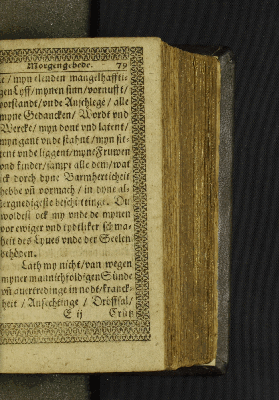 Morgengebede. 79
ke / myn elenden mangelhaffti-
gen Lyff / mynen sinn / vornufft /
vorstandt / vnde Anschlege / alle
myne Gedancken / Wordt vnd
Wercke / myn dont vnd latent /
myn gant vnde stahnt / myn sit-
tent vnde liggent / myne Fruwen
vnd kinder / sampt alle dem / wat
ick dorch dyne Barmherticheit
hebbe vñ vormach / in dyne al-
lergnedigeste beschüttinge. Du
woldest ock my vnde de mynen
vor ewiger vnd tydtliker schma-
heit des Lyues vnde der Seelen
behöden.
Lath my nicht / van wegen
myner mannichfoldigen Sünde
vñ auertredinge in nodt / kranck-
heit / Anfechtinge / Dröffsal /
E ij Crütz